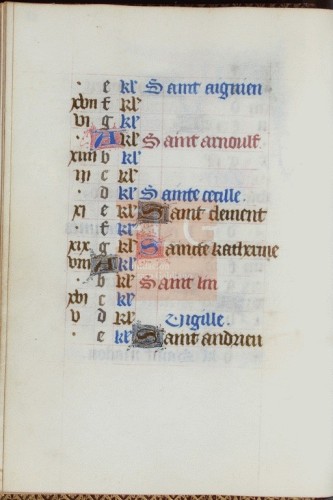 e kl Saint aignien
xvii f kl
vi g kl
A kl Saint arnoult
xiiii b kl
iii c kl
d kl Sainte cecille.
xi e kl Saint clement
f kl
xix g kl Sainte katherine
viii A kl
b kl Saint lin
xvi c kl
v d kl Vigille.
e kl Saint andrieu